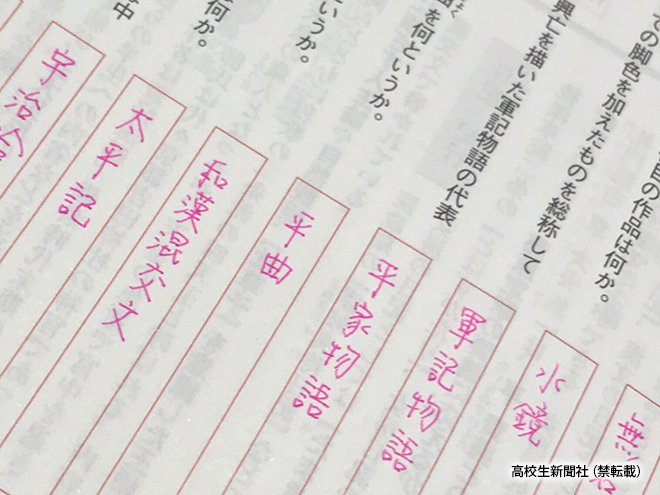 ての脚色を加えたものを総称して
目の作品は何か。
興亡を描いた軍記物語の代表
曲を何というか。
いうか。
何か。
中
無名
水鏡
軍記物語
平家物語
平曲
和漢混交文
太平記
宇治拾
高校生新聞社（禁転載）